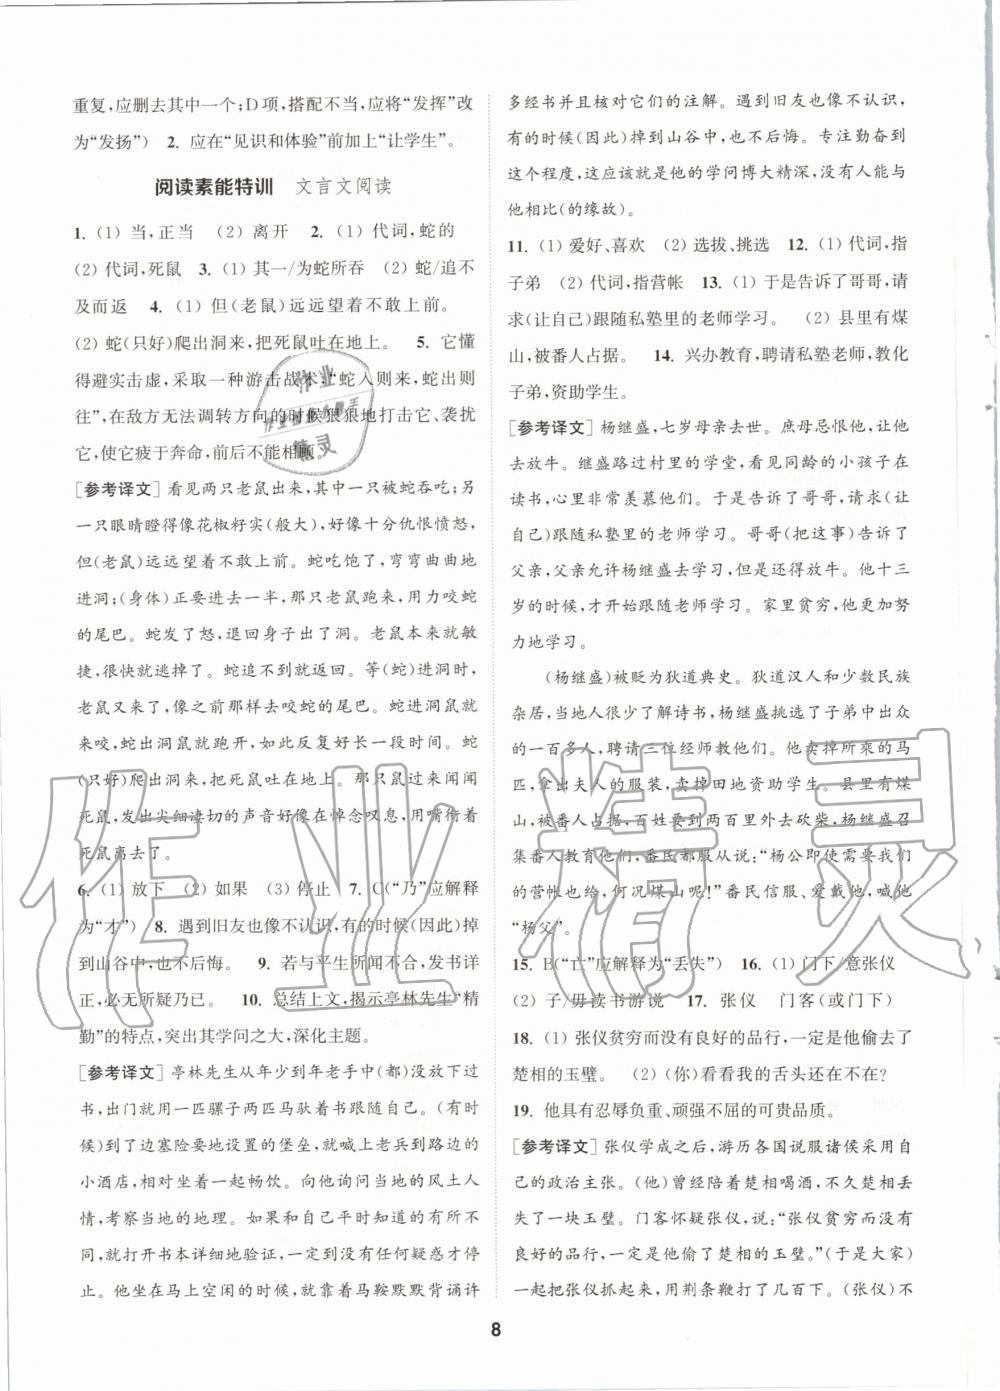 重复,应删去其中一个;D项,搭配不当,应将“发挥”改
为“发扬”) 2. 应在“见识和体验”前加上“让学生”。
阅读素能特训 文言文阅读
1. (1) 当,正当 (2) 离开 2. (1) 代词,蛇的
(2) 代词,死鼠 3. (1) 其一/为蛇所吞 (2) 蛇/追不
及而返 4. (1) 但(老鼠)远远望着不敢上前。
(2) 蛇(只好)爬出洞来,把死鼠吐在地上。 5. 它懂
得避实击虚,采取一种游击战术:“蛇入则来,蛇出则
往”,在敌方无法调转方向的时候狠狠地打击它、袭扰
它,使它疲于奔命,前后不能相顾。
[参考译文] 看见两只老鼠出来,其中一只被蛇吞吃;另
一只眼睛瞪得像花椒籽实(般大),好像十分仇恨愤怒,
但(老鼠)远远望着不敢上前。蛇吃饱了,弯弯曲曲地
进洞;(身体)刚刚进去一半,那只老鼠跑来,用力咬蛇
的尾巴。蛇发了怒,退回身子出了洞。老鼠本来就敏
捷,很快就逃掉了。蛇追不到就返回去。等(蛇)进洞时,
老鼠又来了,像之前那样去咬蛇的尾巴。蛇进洞鼠就
来咬,蛇出洞鼠就跑开,如此反复好长一段时间。蛇
(只好)爬出洞来,把死鼠吐在地上。那只鼠过来闻闻
死鼠,发出尖细凄切的声音好像在悼念叹息,用嘴衔着
死鼠离去了。
6. (1) 放下 (2) 如果 (3) 停止 7. C(“乃”应解释
为“才”) 8. 遇到旧友也像不认识,有的时候(因此)掉
到山谷中,也不后悔。 9. 若与平生所闻不合,发书详
正,必无所疑乃已。 10. 总结上文,揭示亭林先生“精
勤”的特点,突出其学问之大,深化主题。
[参考译文] 亭林先生从年少到年老手中(都)没放下过
书,出门就用一匹骡子两匹马驮着书跟随自己。(有时
候)到了边塞险要地设置的堡垒,就喊上老兵到路边的
小酒店,相对坐着一起畅饮。向他询问当地的风土人
情,考察当地的地理。如果和自己平时知道的有所不
同,就打开书本详细地验证,一定到没有任何疑惑才停
止。他在马上空闲的时候,就靠着马鞍默默背诵许
多经书并且核对它们的注解。遇到旧友也像不认识,
有的时候(因此)掉到山谷中,也不后悔。专注勤奋到
这个程度,这应该就是他的学问博大精深,没有人能与
他相比(的缘故)。
11. (1) 爱好、喜欢 (2) 选拔、挑选 12. (1) 代词,指
子弟 (2) 代词,指营帐 13. (1) 于是告诉了哥哥,请
求(让自己)跟随私塾里的老师学习。 (2) 县里有煤
山,被番人占据。 14. 兴办教育,聘请私塾老师,教化
子弟,资助学生。
[参考译文] 杨继盛,七岁母亲去世。庶母忌恨他,让他
去放牛。继盛路过村里的学堂,看见同龄的小孩子在
读书,心里非常羡慕他们。于是告诉了哥哥,请求(让
自己)跟随私塾里的老师学习。哥哥(把这事)告诉了
父亲,父亲允许杨继盛去学习,但是还得放牛。他十三
岁的时候,才开始跟随老师学习。家里贫穷,他更加努
力地学习。
(杨继盛)被贬为狄道典史。狄道汉人和少数民族
杂居,当地人很少了解诗书,杨继盛挑选了子弟中出众
的一百多人,聘请三位经师教他们。他卖掉所乘的马
匹,拿出夫人的服装,卖掉田地资助学生。县里有煤
山,被番人占据,百姓要到两百里外去砍柴,杨继盛召
集番人教育他们,番民都服从说:“杨公即使需要我们
的营帐也给,何况煤山呢!”番民信服、爱戴他,喊他
“杨父”。
15. B(“亡”应解释为“丢失”) 16. (1) 门下/意张仪
(2) 子/毋读书游说 17. 张仪 门客(或门下)
18. (1) 张仪贫穷而没有良好的品行,一定是他偷去了
楚相的玉璧。 (2) (你)看看我的舌头还在不在?
19. 他具有忍辱负重、顽强不屈的可贵品质。
[参考译文] 张仪学成之后,游历各国说服诸侯采用自
己的政治主张。(他)曾经陪着楚相喝酒,不久楚相丢
失了一块玉璧。门客怀疑张仪,说:“张仪贫穷而没有
良好的品行,一定是他偷去了楚相的玉璧。”(于是大家)
一起把张仪抓起来,用荆条鞭打了几百下。(张仪)不
8
作业精灵